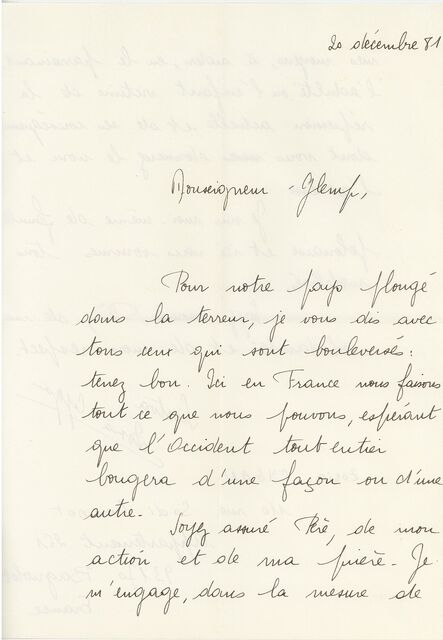 20 décembre 81
Monseigneur Glemp,
Pour notre pays plongé
dans la terreur, je vous dis avec
tous ceux qui sont bouleversés :
tenez bon. Ici en France nous faisons
tout ce que nous pouvons, espérant
que l'Occident tout entier
bougera d'une façon ou d'une
autre.
Soyez assuré Père, de mon
action et de ma prière. Je
m'engage, dans la mesure de